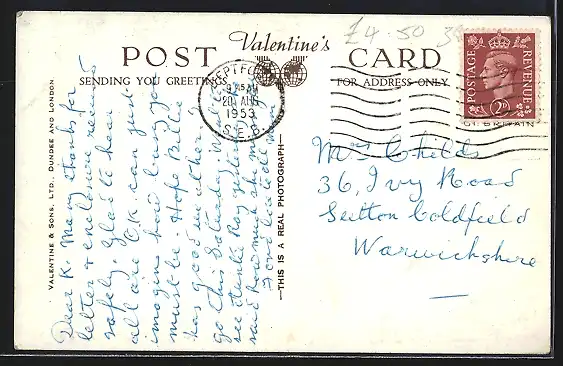 £4.50
Valentine's
POST CARD
SENDING YOU GREETINGS
FOR ADDRESS ONLY
20 AUG
1953
S.E.8.
POSTAGE
REVENUE
2D
VALENTINE & SONS, LTD., DUNDEE AND LONDON
—THIS IS A REAL PHOTOGRAPH—
Dear K. Many thanks for
letter & enclosure received
safely. Glad to hear
all are O.K. can just
imagine how busy you
must be. Hope Billie
has good weather
go this Saturday. 
see Ray
said how much she
Mrs Childs
36, Ivy Road
Sutton Coldfield
Warwickshire